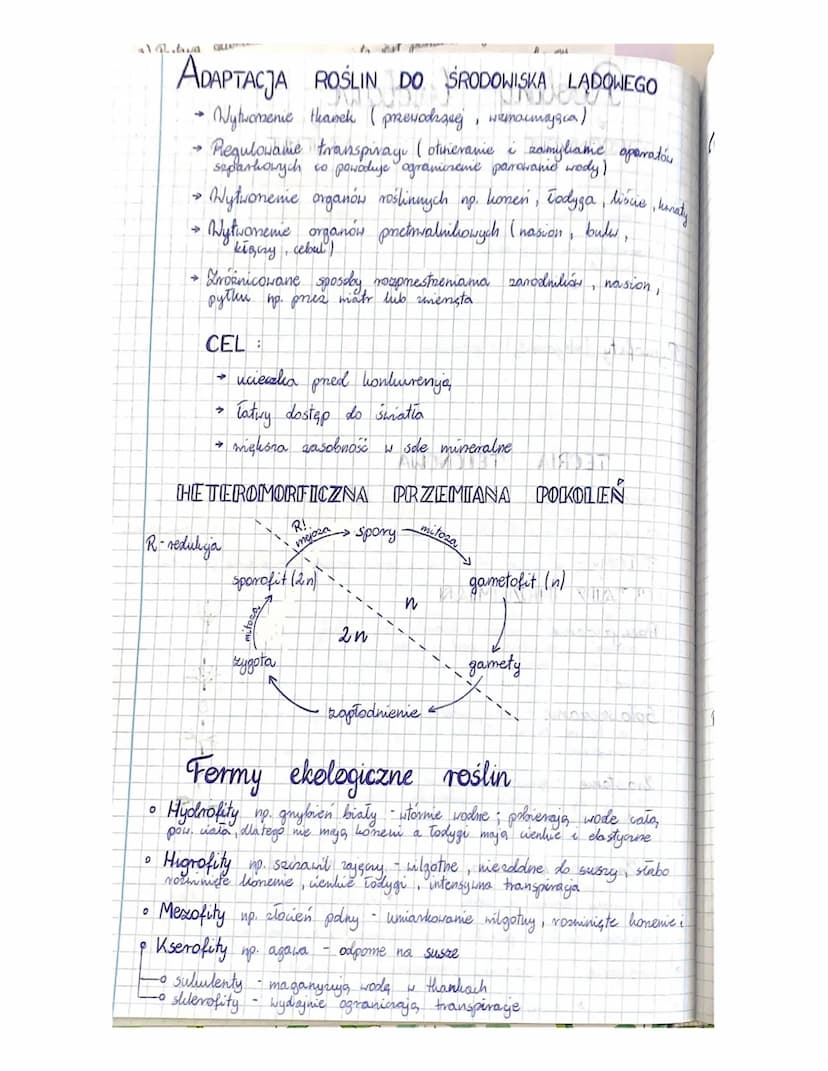 ADAPTACJA ROŚLIN DO ŚRODOWISKA LĄDOWEGO
→ Wytworzenie tkanek (przewodzącej, wzmacniająca)
→ Regulowanie transpiracji (otwieranie i zamykanie aparatów
szparkowych co powoduje ograniczenie parowania wody)
→ Wytworzenie organów roślinnych np. korzeń, łodyga, liście, kwiaty
→ Wytworzenie organów przetrwalnikowych (nasion, bulw,
kłączy, cebul)
→ Zróżnicowane sposoby rozprzestrzeniania zarodników, nasion,
pyłku np. przez wiatr lub zwierzęta
CEL :
→ ucieczka przed konkurencją
→ łatwy dostęp do światła
→ większa zasobność w sole mineralne
HETEROMORFICZNA PRZEMIANA POKOLEŃ
R - redukcja
R!
mejoza
spory
mitoza
sporofit (2n)
gametofit (n)
n
2n
mitoza
zygota
gamety
zapłodnienie
Formy ekologiczne roślin
Hydrofity np. grzybień biały - wtórnie wodne ; pobierają wodę całą
pow. ciała, dlatego nie mają korzeni a łodygi mają cienkie i elastyczne
Higrofity np. szczawik zajęczy - wilgotne, niezdolne do suszy, słabo
rozwinięte korzenie, cienkie łodygi, intensywna transpiracja
Mezofity np. złocień polny - umiarkowanie wilgotny, rozwinięte korzenie
Kserofity np. agawa - odporne na susze
sukulenty - magazynują wodę w tkankach
sklerofity - wydajnie ograniczają transpiracje